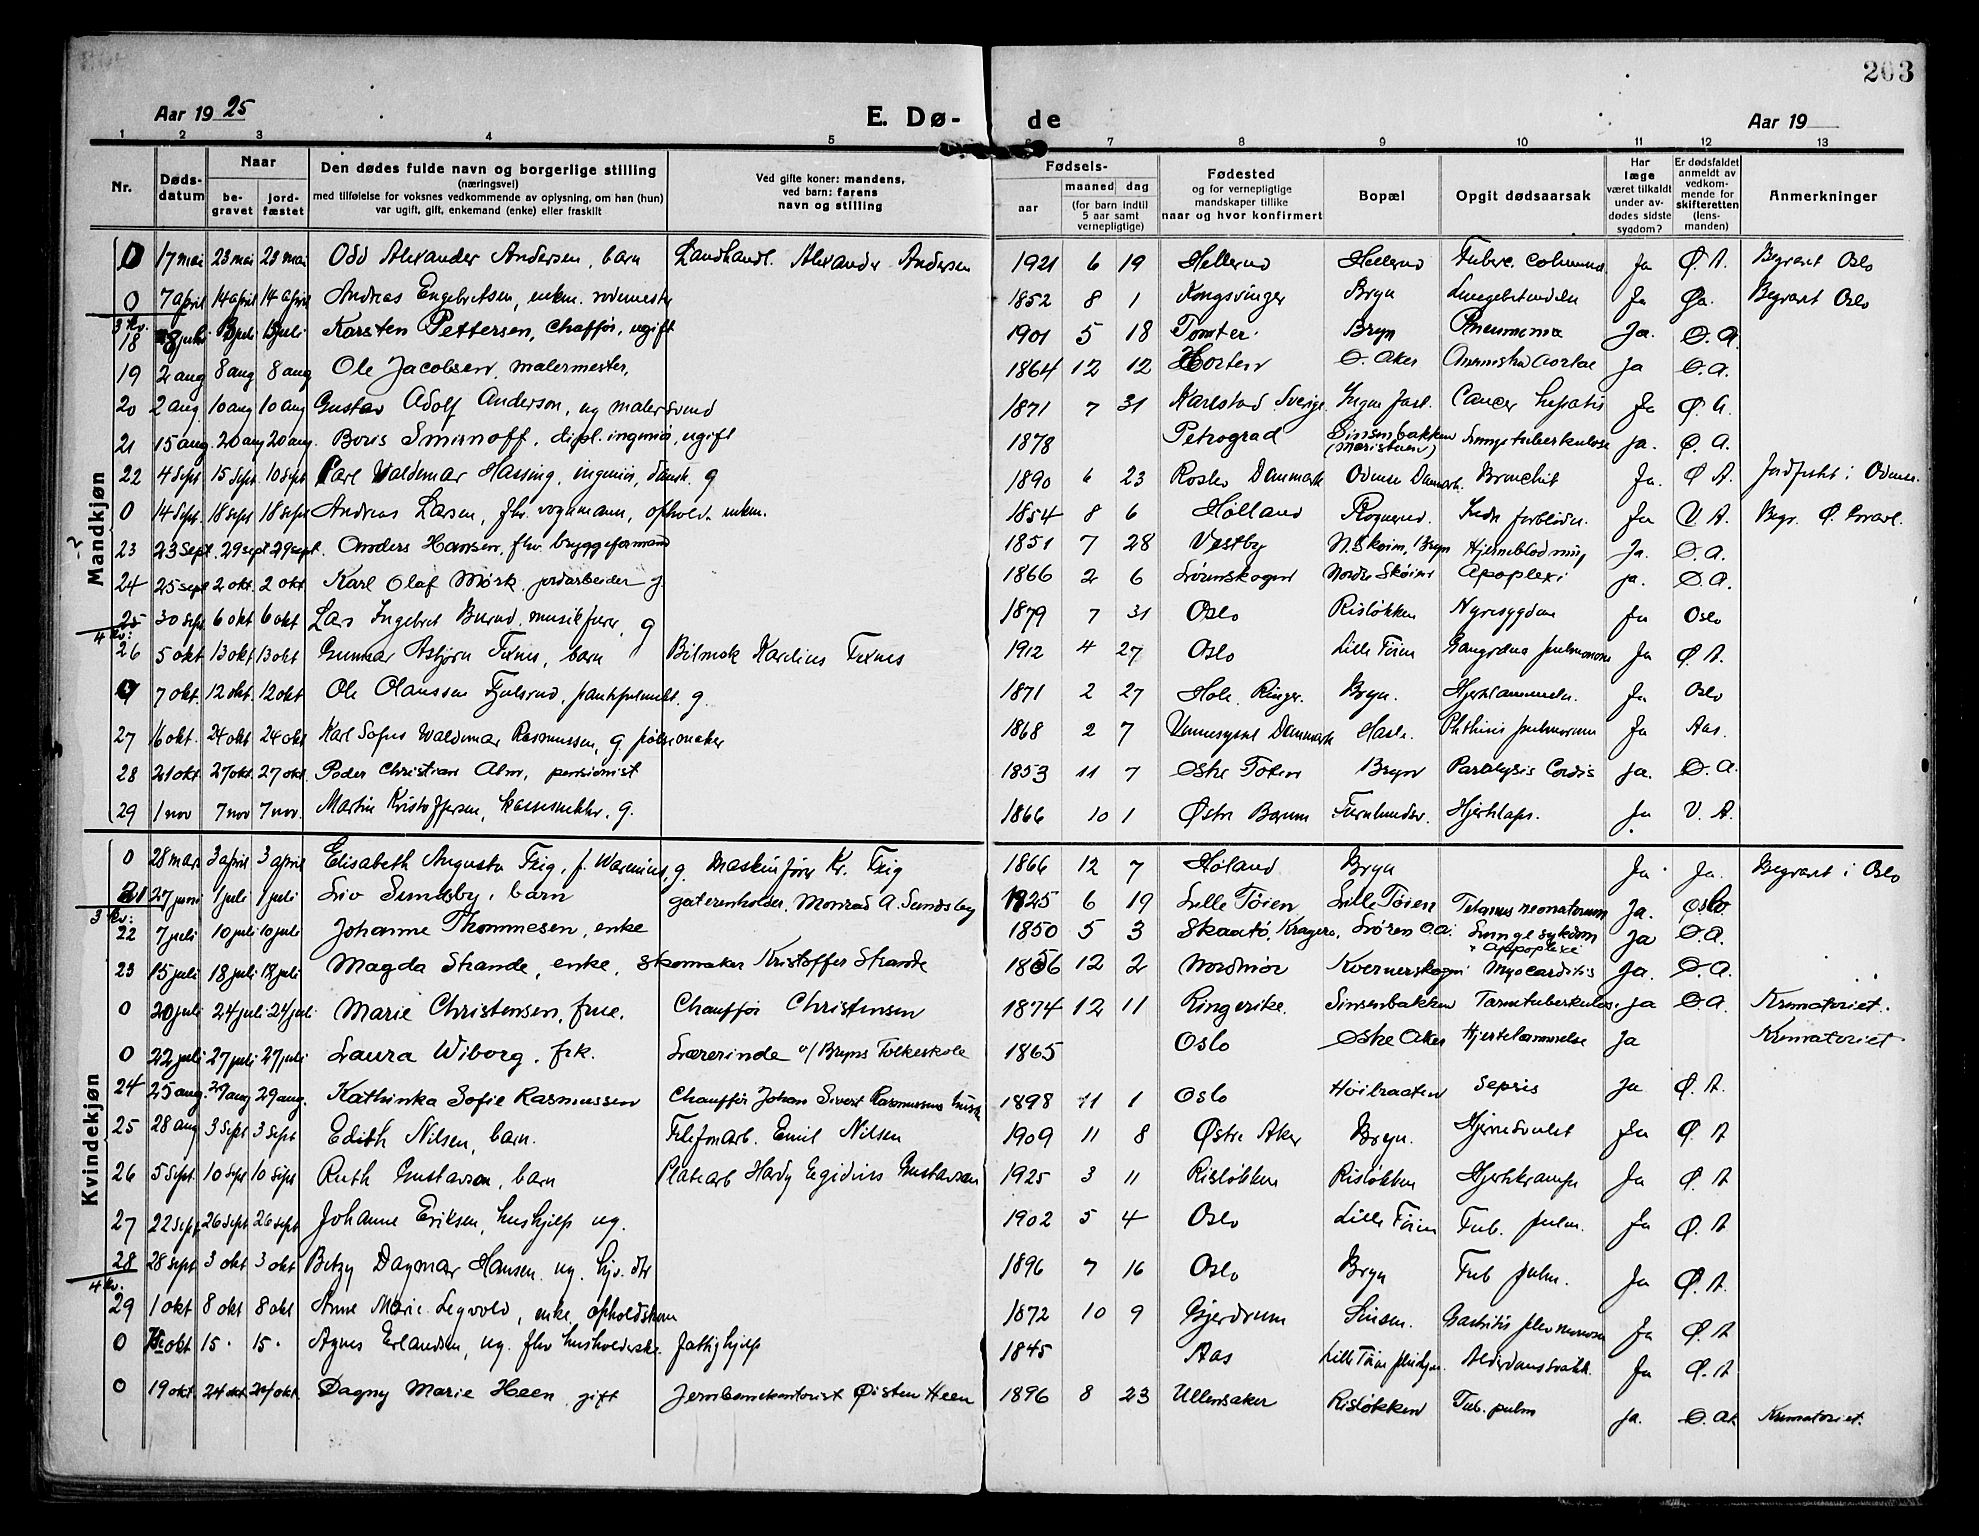 203
Aar 1925 E. Dø- de Aar 19
1 2 3 4 5 6 7 8 9 10 11 12 13
Nr. Døds-datum Naar begravet jordfæstet Den dødes fulde navn og borgerlige stilling (næringsvei) med tilføielse for voksnes vedkommende av oplysning, om han (hun) var ugift, gift, enkemand (enke) eller fraskilt Ved gifte koner: mandens, ved barn: farens navn og stilling Fødsels- aar maaned dag (for barn indtil 5 aar samt vernepligtige) Fødested og for vernepligtige mandskaper tillike naar og hvor konfirmert Bopæl Opgit dødsaarsak Har læge været tilkaldt under avdødes sidste sygdom? Er dødsfaldet anmeldt av vedkommende for skifteretten (lensmanden) Anmerkninger
Mandkjøn
0 17 mai 23 mai 23 mai Odd Alexander Andersen, barn Landhandl. Alexander Andersen 1921 6 19 Hellerud Hellerud Tuberc. Ja Ø. A. Begravet Oslo
0 7 april 14 april 14 april Andreas Engebretsen, enkm. rodemester 1852 8 1 Kongsvinger Bryn Ja Øa. Begravet Oslo
3 Kv.
18 juli juli juli Karsten Pettersen, chaffør, ugift 1901 5 18 Tomter Bryn Pneumonia Ja. Ø. A.
19 2 aug 8 aug 8 aug Ole Jacobsen, malermester, 1864 12 12 Horten Ø. Aker aortae Ja Ø. A.
20 2 aug. 10 aug 10 aug Gustav Adolf Anderson, ug malersvend 1871 7 31 Karlstad Sverige Cancer hepatis Ja Ø. A.
21 15 aug. 20 aug 20 aug. Boris Smirnoff, dipl. ingeniør, ugift 1878 Petrograd Sinsenbakken Lungetuberkulose Ja. Ø. A.
22 4 sept 15 sept 10 sept Carl Valdemar Hassing, ingeniør, dansk. g 1890 6 23 Roslev Danmark Odense Danmark Bronchit Ja. Ø A. Jordfestet i Odense.
0 14 sept. 18 sept 18 sept Andreas Larsen, fhv. vognmann, ophold. enkm. 1854 8 6 Høland Rognerud. Indre forblødn. Ja V A. Begr. Ø.
23 23 sept. 29 sept 29 sept. Anders Hansen, fhv. bryggeformand 1851 7 28 Vestby N. Skøien, Bryn Hjerneblødning Ja. Ø. A.
24 25 sept 2 okt 2 okt Karl Olaf Mørk jordarbeider g 1866 2 6 Lørenskogen Nordre Skøien Apoplexi ja. Ø. A.
25 30 sept 6 okt 6 okt Lars Ingebret Burud, musikfører, g 1879 7 31 Oslo Risløkken Nyresygdom Ja Oslo
4 Kv:
26 5 okt 13 okt 13 okt Gunnar Asbjørn Fexnes, barn Bilmek Karelius Fexnes 1912 4 27 Oslo Lille Tøien Ja Ø. A.
0 7 okt. 12 okt. 12 okt Ole Olaussen Fjulsrud, g. 1871 2 27 Hole Ringer. Bryn. Hjertelammelse. Ja Oslo
27 16 okt. 24 okt 24 okt Karl Sofus Waldemar Rasmussen, g pølsemaker 1868 2 7 Danmark Hasle. Phthisis pulmonum Ja Aas.
28 21 okt 27 okt. 27 okt. Peder Christian Alm, pensionist 1853 11 7 Østre Toten Bryn Paralysis Cordis Ja. Ø. A.
29 1 nov 7 nov 7 nov. Martin Kristoffersen, g. 1866 10 1 Østre Bærum Furulundsv. Hjertelaps. Ja V. A.
Kvindekjøn
0 28 mars 3 april 3 april Elisabeth Augusta Fzig, f. g. Maskinfører Kr. Fzig 1866 12 7 Høland Bryn Ja Ja. Begravet i Oslo
21 27 juni 1 juli 1 juli Liv Sundsby, barn Monrad A. Sundsby 1925 6 19 Lille Tøien Lille Tøien Tetanus neonatorum Ja. Oslo.
3 Kv:
22 7 juli 10 juli 10 juli Johanne Thommesen, enke 1850 5 3 Skaatø, Kragerø, Løren Ø.A. Lungesykdom + appoplexi Ja Ø. A.
23 15 juli 18 juli 18 juli Magda Strande, enke, skomaker Kristoffer Strande 12 2 Nordmør Kvernerskogen Myocarditis Ja. Ø. A.
0 20 juli 24 juli 24 juli Marie Christensen, frue. Chauffør Christensen 1874 12 11 Ringerike. Sinsenbakken Tarmtuberkulos. ja Ø. A. Krematoriet.
0 22 juli 27 juli 27 juli Laura Wiborg, frk. Lærerinde v/ Bryns Folkeskole 1865 Oslo Østre Aker Hjertelammelse Ja Krematoriet
24 25 aug. 29 aug 29 aug. Kathinka Sofie Rasmussen Chauffør Johan Sivert Rasmussens 1898 11 1 Oslo Høibraaten Sepsis Ja Ø. A.
25 28 aug 3 sept 3 sept Edith Nilsen, barn. Telefonarb. Emil Nilsen 1909 11 8 Østre Aker Bryn. Hjernesvulst Ja Ø. A
26 5 sept. 10 sept 10 sept Ruth Gustavson, barn Platearb Hardy Egidius Gustavson 1925 3 11 Risløkken Risløkken Hjertekrampe Ja Ø. A
27 22 sept 26 sept 26 sept Johanne Eriksen, hushjelp ug. 1902 5 4 Oslo Lille Tøien Tub. pulm. Ja Ø. A
28 28 sept 3 okt 3 okt Betzy Dagmar Hansen, ug. hjv. dtr 1896 7 16 Oslo Bryn Tub pulm. Ja Ø. A.
4 Kv:
29 1 okt 8 okt 8 okt Anne Marie Legvold, enke, 1872 10 9 Gjerdrum Sinsen. Ja Ø. A
0 okt 15 · 15 · Agnes Erlandsen, ug. fhv husholderske. Fattighjelp 1845 Aas Lille Tøien Alderdomssvakh. Ja Ø. A
0 19 okt 24 okt 24 okt. Dagny Marie Heen, gift Jernbanekontorist Øisten Heen 1896 8 23 Ullensaker Risløkken Tub. pulm ja. Ø. Ak Krematoriet.